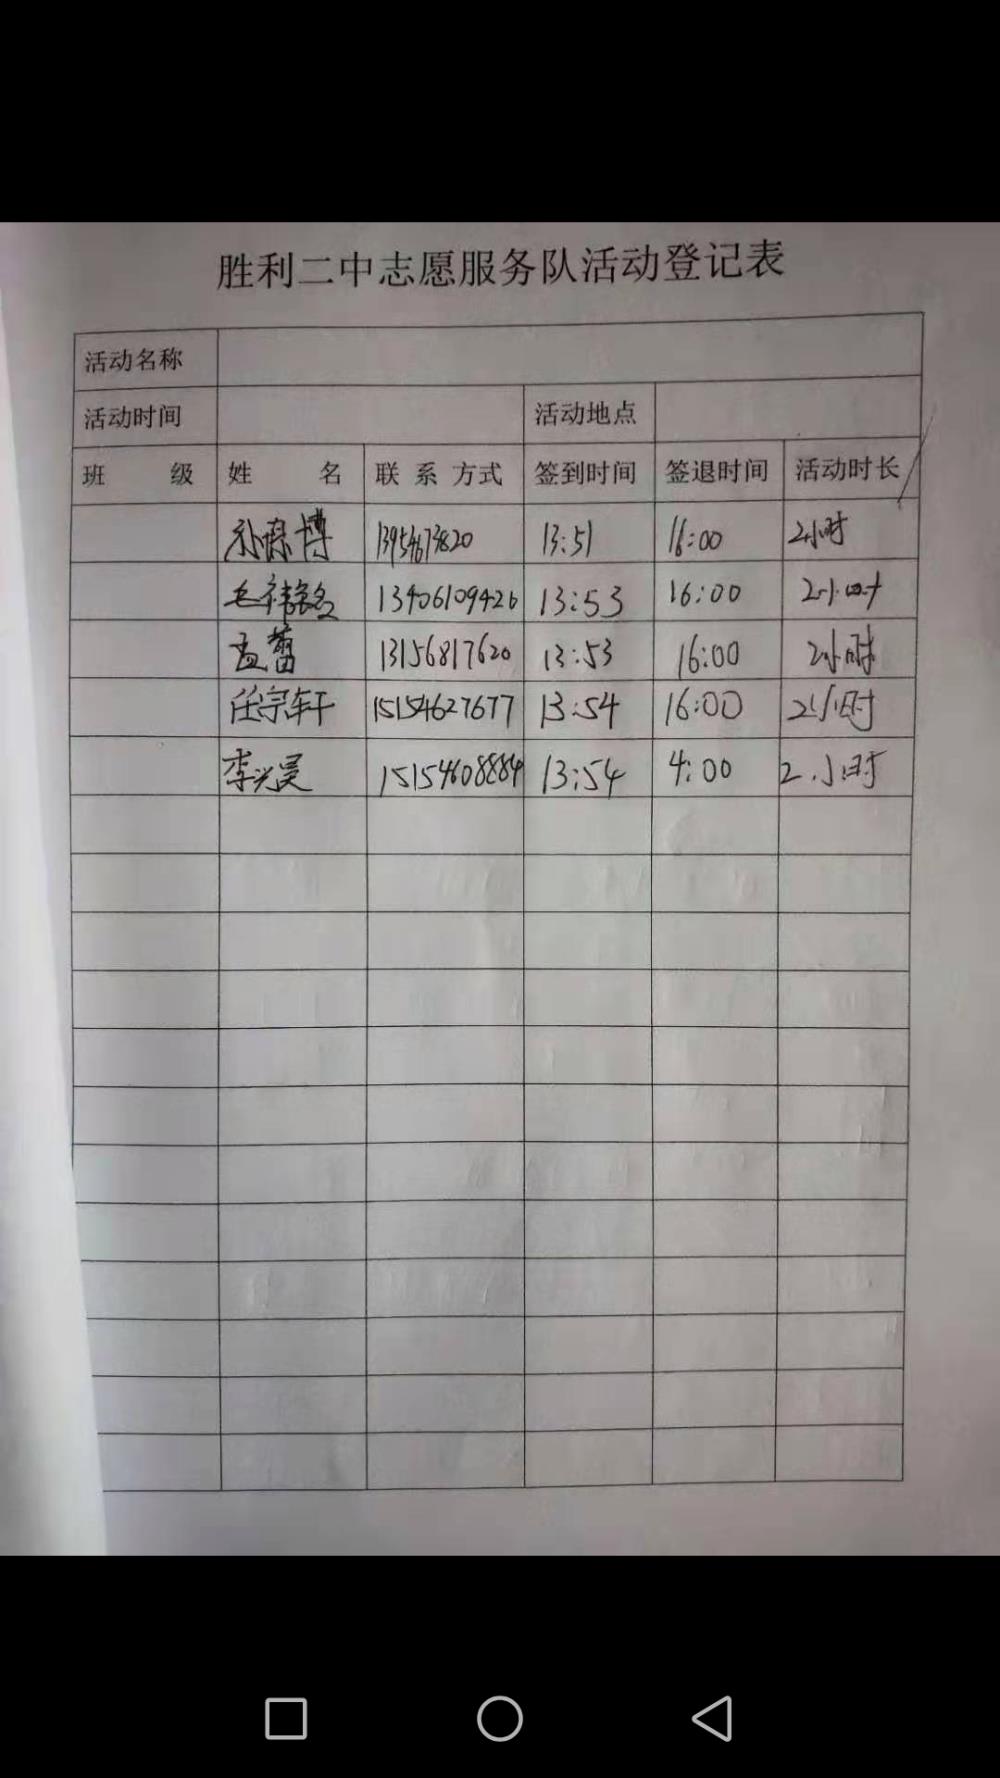 胜利二中志愿服务队活动登记表
活动名称
活动时间 活动地点
班 级 姓 名 联 系 方式 签到时间 签退时间 活动时长
博 13954673820 13:51 16:00 2小时
13406109426 13:53 16:00 2小时
孟蕾 13156817620 13:53 16:00 2小时
任宗轩 15154627677 13:54 16:00 2小时
李兴昊 15154608884 13:54 4:00 2.小时